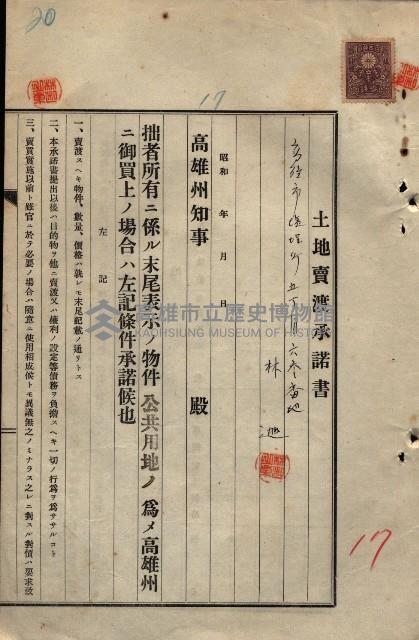 20
17
土地賣渡承諾書
高雄市塩埕町五丁目六参番地
林
昭和　年　月　日
高雄州知事　　　　殿
拙者所有ニ係ル末尾表示ノ物件公共用地ノ爲メ高雄州
ニ御買上ノ場合ハ左記條件承諾候也
左記
一、賣渡スヘキ物件、數量、價格ハ孰レモ末尾記載ノ通リトス
二、本承諾書提出以後ハ目的物ヲ他ニ賣渡又ハ權利ノ設定等債務ヲ負擔スヘキ一切ノ行爲ヲ爲ササルコト
三、賣買實施以前ト雖官ニ於テ必要ノ場合ハ隨意ニ使用相成候トモ異議無之ノミナラス之レニ對スル對價ハ要求致
高雄市立歷史博物館
KAOHSIUNG MUSEUM OF HISTORY
17